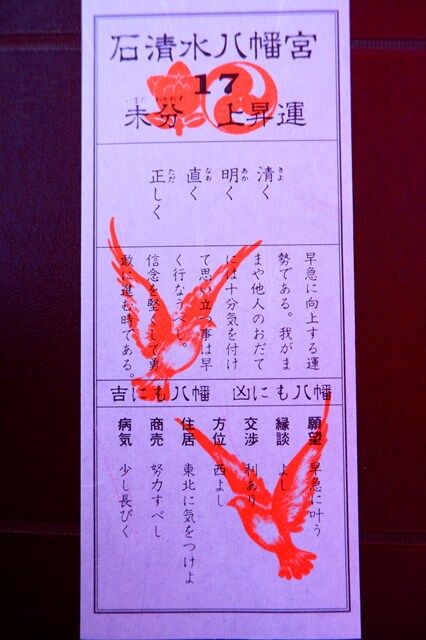 石清水八幡宮
17
未分 上昇運
いまだ わかれず
清く
きよ
明く
あか
直く
なお
正しく
ただ
早急に向上する運
勢である。我がま
まや他人のおだて
には十分気を付け
て思い立つ事は早
く行なうべし。
信念を堅くして勇
敢に進む時である。
吉にも八幡 凶にも八幡
願望 早急に叶う
縁談 よし
交渉 利あり
方位 西よし
住居 東北に気をつけよ
商売 努力すべし
病気 少し長びく